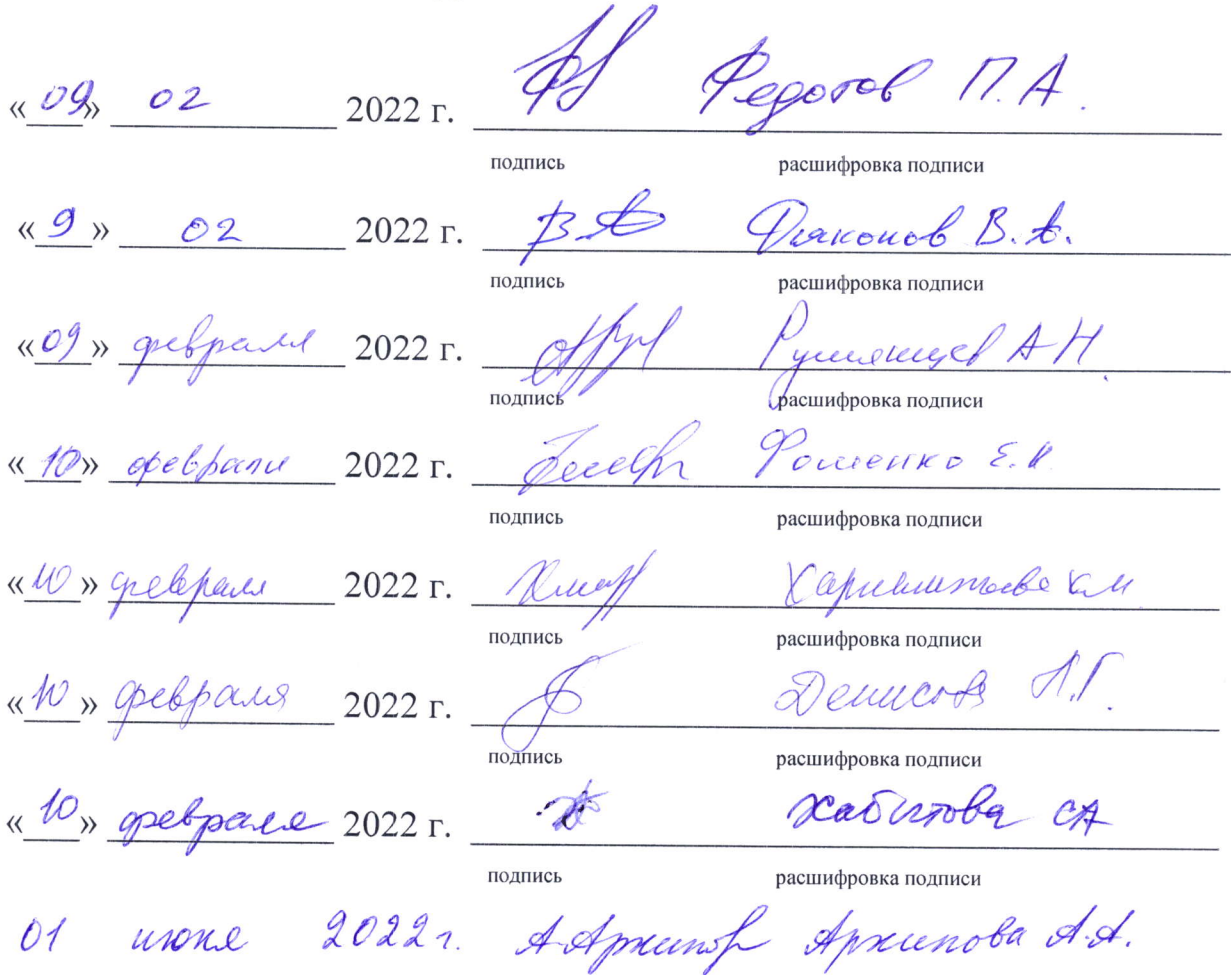 «09» 02 2022 г. Федотов П.А.
подпись расшифровка подписи
«9» 02 2022 г. Дьяконов В.А.
подпись расшифровка подписи
«09» февраля 2022 г. Румянцев А.Н.
подпись расшифровка подписи
«10» февраля 2022 г. Фоменко Е.И.
подпись расшифровка подписи
«10» февраля 2022 г. К.М
подпись расшифровка подписи
«10» февраля 2022 г. Денисова Л.Г.
подпись расшифровка подписи
«10» февраля 2022 г. Хабитова СА
подпись расшифровка подписи
01 июня 2022 г. Архипова А.А.